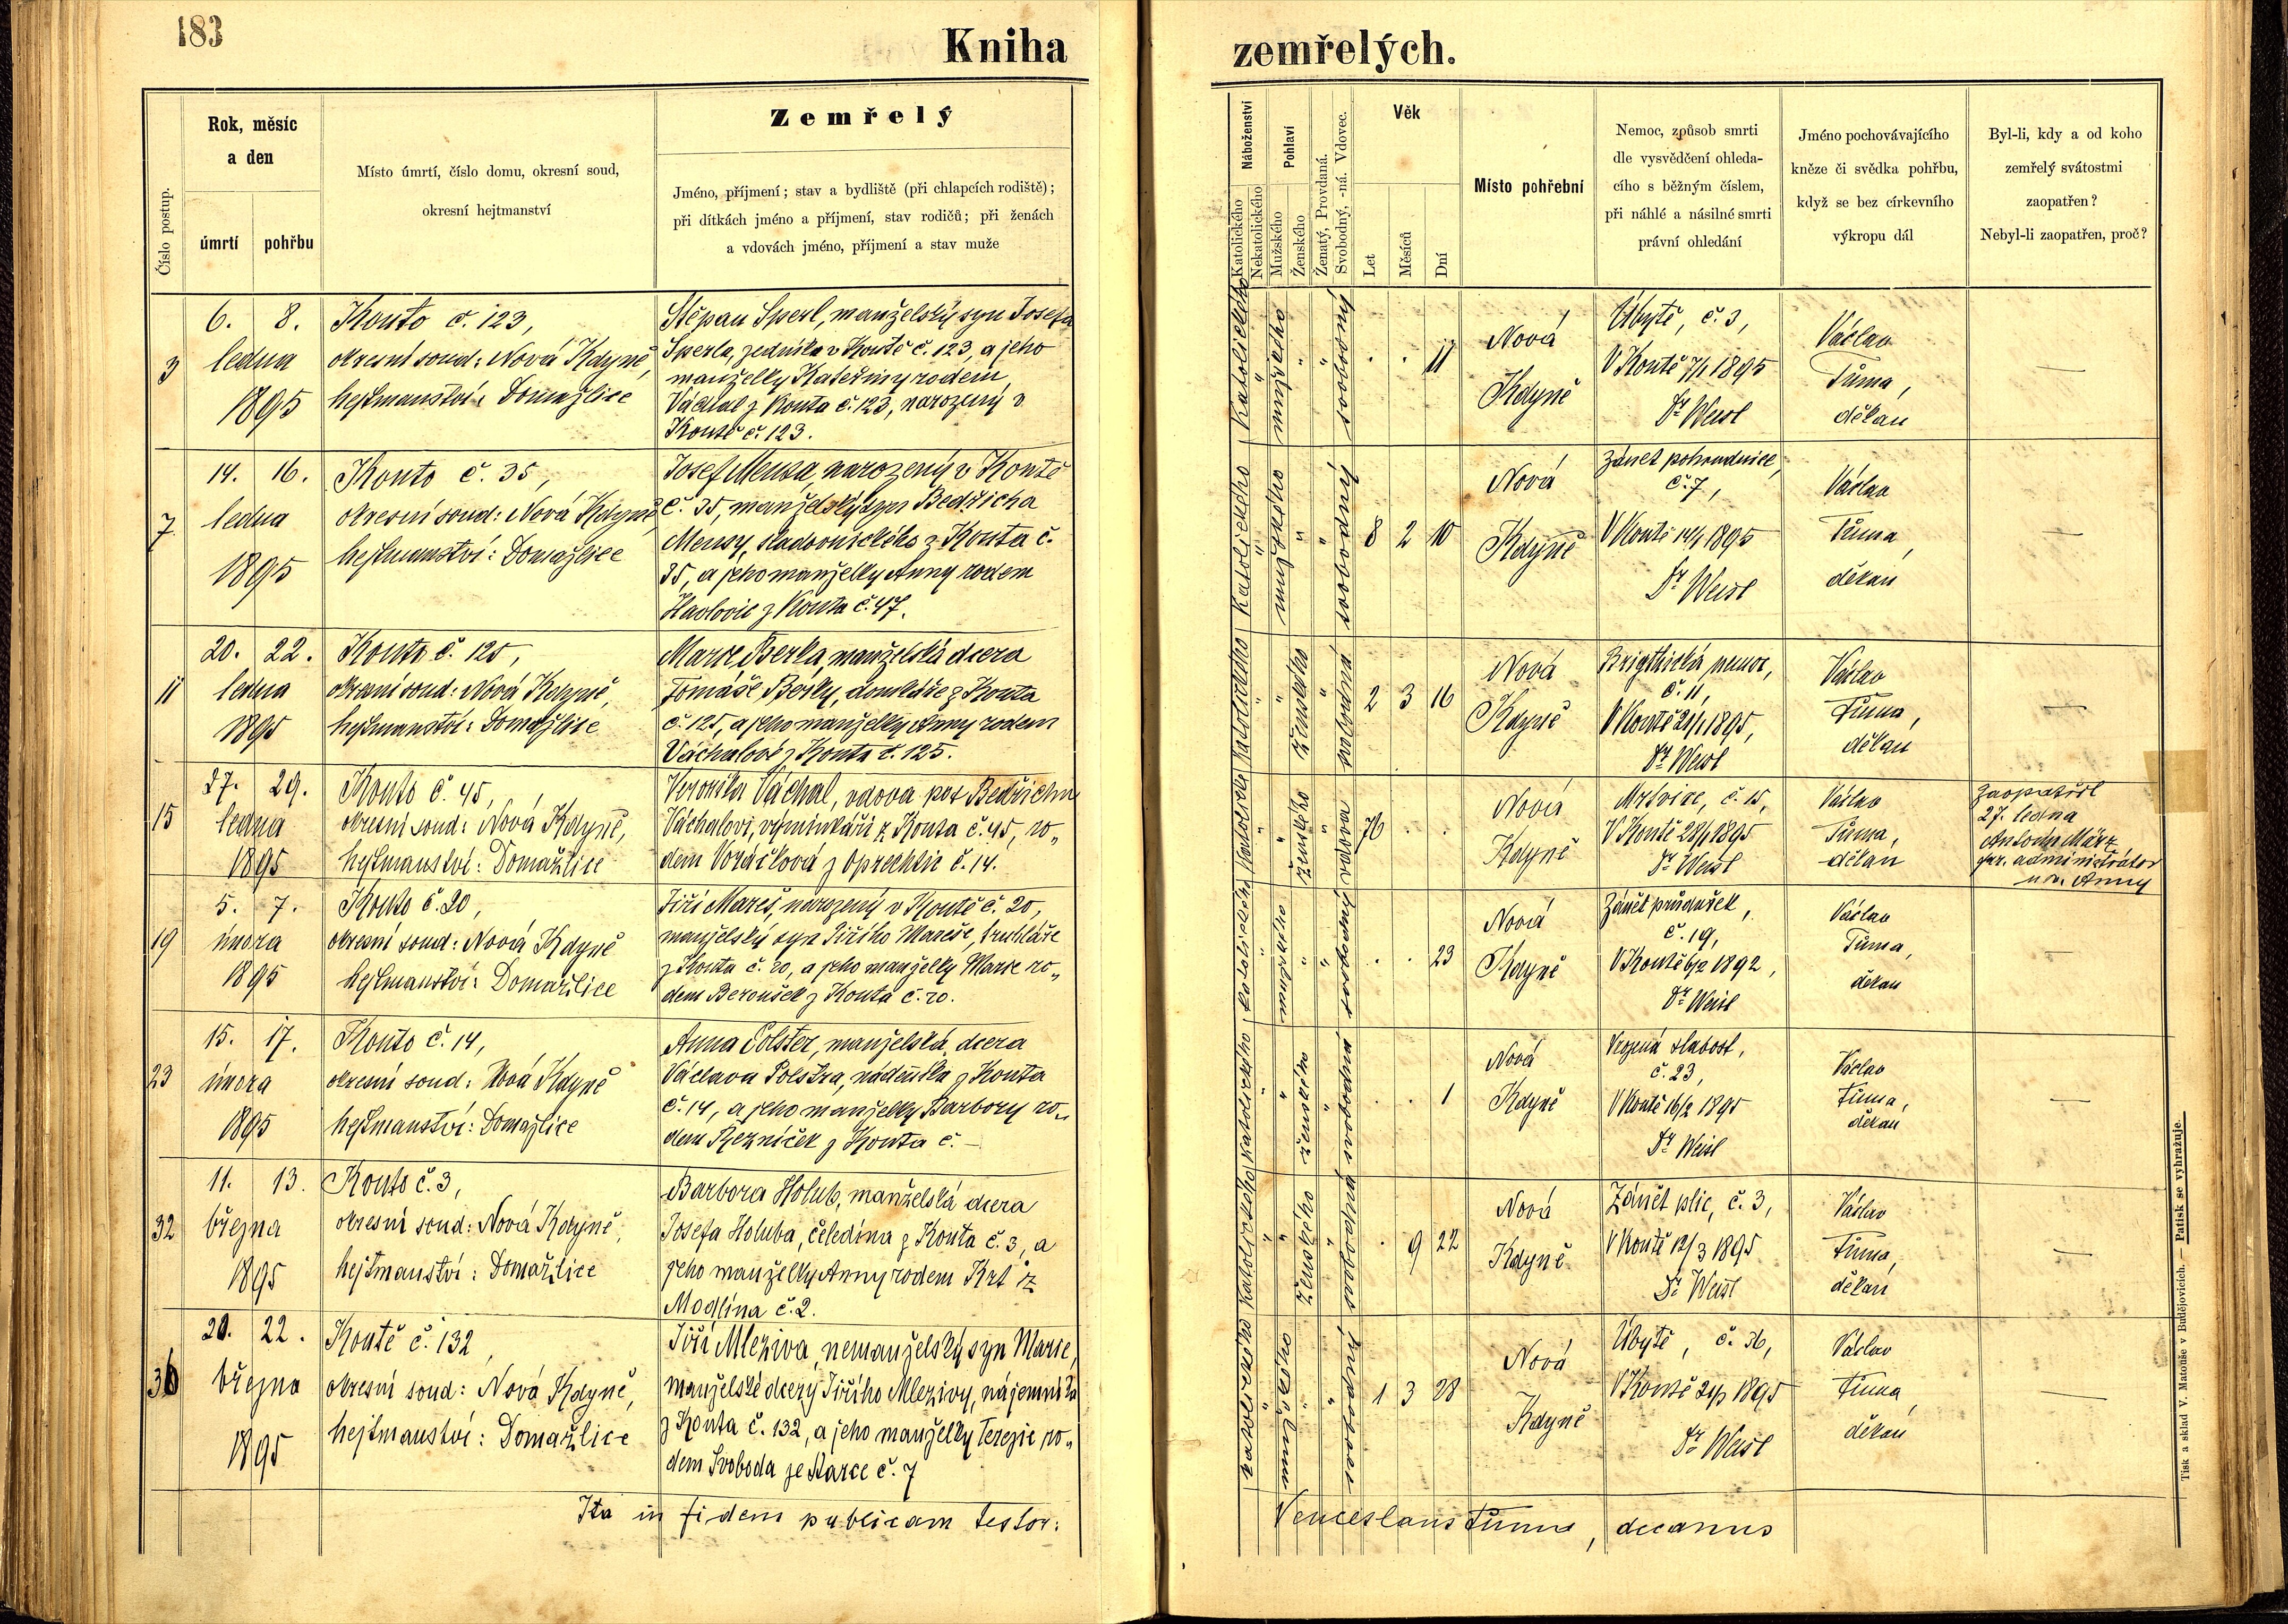 183
Kniha
zemřelých.
Číslo postup.
Rok, měsíc
a den
úmrtí
pohřbu
Místo úmrtí, číslo domu, okresní soud,
okresní hejtmanství
Zemřelý
Jméno, příjmení; stav a bydliště (při chlapcích rodiště);
při dítkách jméno a příjmení, stav rodičů; při ženách
a vdovách jméno, příjmení a stav muže
Náboženství
Katolického
Nekatolického
Pohlaví
Mužského
Ženského
Ženatý, Provdaná.
Svobodný, -ná. Vdovec.
Věk
Let
Měsíců
Dní
Místo pohřební
Nemoc, způsob smrti
dle vysvědčení ohleda-
cího s běžným číslem,
při náhlé a násilné smrti
právní ohledání
Jméno pochovávajícího
kněze či svědka pohřbu,
když se bez církevního
výkropu dál
Byl-li, kdy a od koho
zemřelý svátostmi
zaopatřen?
Nebyl-li zaopatřen, proč?
3
6. 8.
ledna
1895
Kouto č. 123,
okresní soud: Nová Kdyně,
hejtmanství: Domažlice
Štěpan Sperl, manželský syn Josefa
Sperla, zedníka v Koutě č. 123, a jeho
manželky Kateřiny rodem
Váchal z Kouta č. 123, narozený v
Koutě č. 123.
Katolického
mužského
svobodný
. . 11
Nová
Kdyně
Úbytě, č. 3,
V Koutě 7/1 1895
Dr Weisl
Václav
Tůma,
děkan
—
7
14. 16.
ledna
1895
Kouto č. 35,
okresní soud: Nová Kdyně
hejtmanství: Domažlice
Josef Mensa, narozený v Koutě
č. 35, manželský syn Bedřicha
Mensy, sladovnického z Kouta č.
35, a jeho manželky Anny rodem
Havlovic z Kouta č. 47.
Katolického
mužského
svobodný
8 2 10
Nová
Kdyně
Zánět pohrudnice,
č. 7,
V Koutě 14/1 1895
Dr Weisl
Václav
Tůma,
děkan
—
11
20. 22.
ledna
1895
Kouto č. 125,
okresní soud: Nová Kdyně,
hejtmanství: Domažlice
Marie Berka, manželská dcera
Tomáše Berky, domkáře z Kouta
č. 125, a jeho manželky Anny rodem
Váchalové z Kouta č. 125.
Katolického
ženského
svobodná
2 3 16
Nová
Kdyně
Brigthická nemoc,
č. 11,
V Koutě 21/1 1895,
Dr Weisl
Václav
Tůma,
děkan
—
15
27. 29.
ledna
1895
Kouto č. 45,
okresní soud: Nová Kdyně,
hejtmanství: Domažlice
Veronika Váchal, vdova po Bedřichu
Váchalovi, výminkáři z Kouta č. 45, ro„
dem Voráčková z Oprechtic č. 14.
ženského
vdova
76 . .
Nová
Kdyně
Mrtvice, č. 15,
V Koutě 28/1 1895
Dr Weisl
Václav
Tůma,
děkan
Zaopatřil
27. ledna
Antonín März
administrátor
Anny
19
5. 7.
února
1895
Kouto č. 20,
okresní soud: Nová Kdyně
hejtmanství: Domažlice
Jiří Mareš, narozený v Koutě č. 20,
manželský syn Jiřího Mareše, truhláře
z Kouta č. 20, a jeho manželky Marie ro„
dem Beroušek z Kouta č. 20.
Katolického
mužského
svobodný
. . 23
Nová
Kdyně
Zánět průdušek,
č. 19,
V Koutě 6/2 1892,
Dr Weisl
Václav
Tůma,
děkan
—
23
15. 17.
února
1895
Kouto č. 14,
okresní soud: Nová Kdyně
hejtmanství: Domažlice
Anna Polster, manželská dcera
Václava Polstra, nádeníka z Kouta
č. 14, a jeho manželky Barbory ro„
dem Řezníček z Kouta č. —
Katolického
ženského
svobodná
. . 1
Nová
Kdyně
Vrozená slabost,
č. 23,
V Koutě 16/2 1895
Dr Weisl
Václav
Tůma,
děkan
—
32
11. 13.
března
1895
Kouto č. 3,
okresní soud: Nová Kdyně,
hejtmanství: Domažlice
Barbora Holub, manželská dcera
Josefa Holuba, čeledína z Kouta č. 3, a
jeho manželky Anny rodem Krt z
Modlína č. 2.
Katolického
ženského
svobodná
. 9 22
Nová
Kdyně
Zánět plic, č. 3,
V Koutě 12/3 1895
Dr Weisl
Václav
Tůma,
děkan
—
36
20. 22.
března
1895
Koutě č. 132,
okresní soud: Nová Kdyně,
hejtmanství: Domažlice
Jiří Mleziva, nemanželský syn Marie,
manželské dcery Jiřího Mlezivy, nájemníka
z Kouta č. 132, a jeho manželky Terezie ro„
dem Svoboda ze Starce č. 7
Katolického
mužského
svobodný
1 3 28
Nová
Kdyně
Úbytě, č. 36,
V Koutě 1895
Dr Weisl
Václav
Tůma,
děkan
—
Ita in fidem publicam testor:
Venceslaus Tůma, decanus
Tisk a sklad V. Matouše v Budějovicích. — Patisk se vyhražuje.